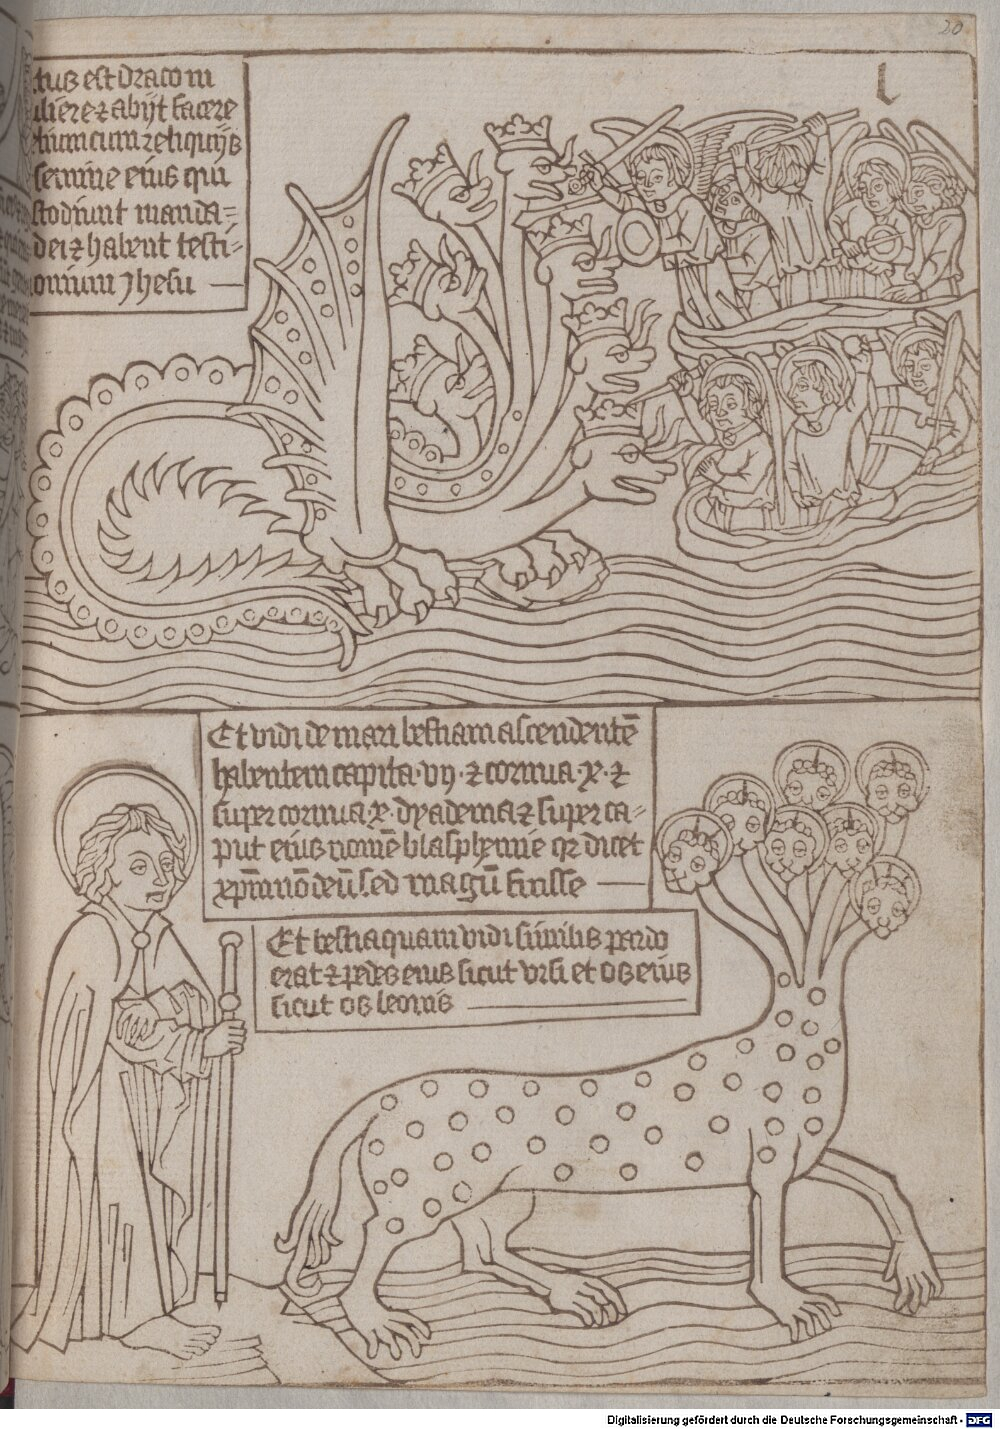 20
l
.tus est draco m
uliere ⁊ abijt facere
lium cum reliquijs
semine eius qui
stodiunt manda=
dei ⁊ habent testi=
onium Jhesu
Et vidi de mari bestiam ascendentē
habentem capita ·vij· ⁊ cornua ·x· ⁊
super cornua x· dyadema ⁊ super ca=
put eius nomē blasphemie qz dicet
xp̄m nō deū sed magū fuisse
Et bestia quam vidi similis pardo
erat ⁊ pedes eius sicut vrsi et os eius
sicut os leonis
Digitalisierung gefördert durch die Deutsche Forschungsgemeinschaft - DFG